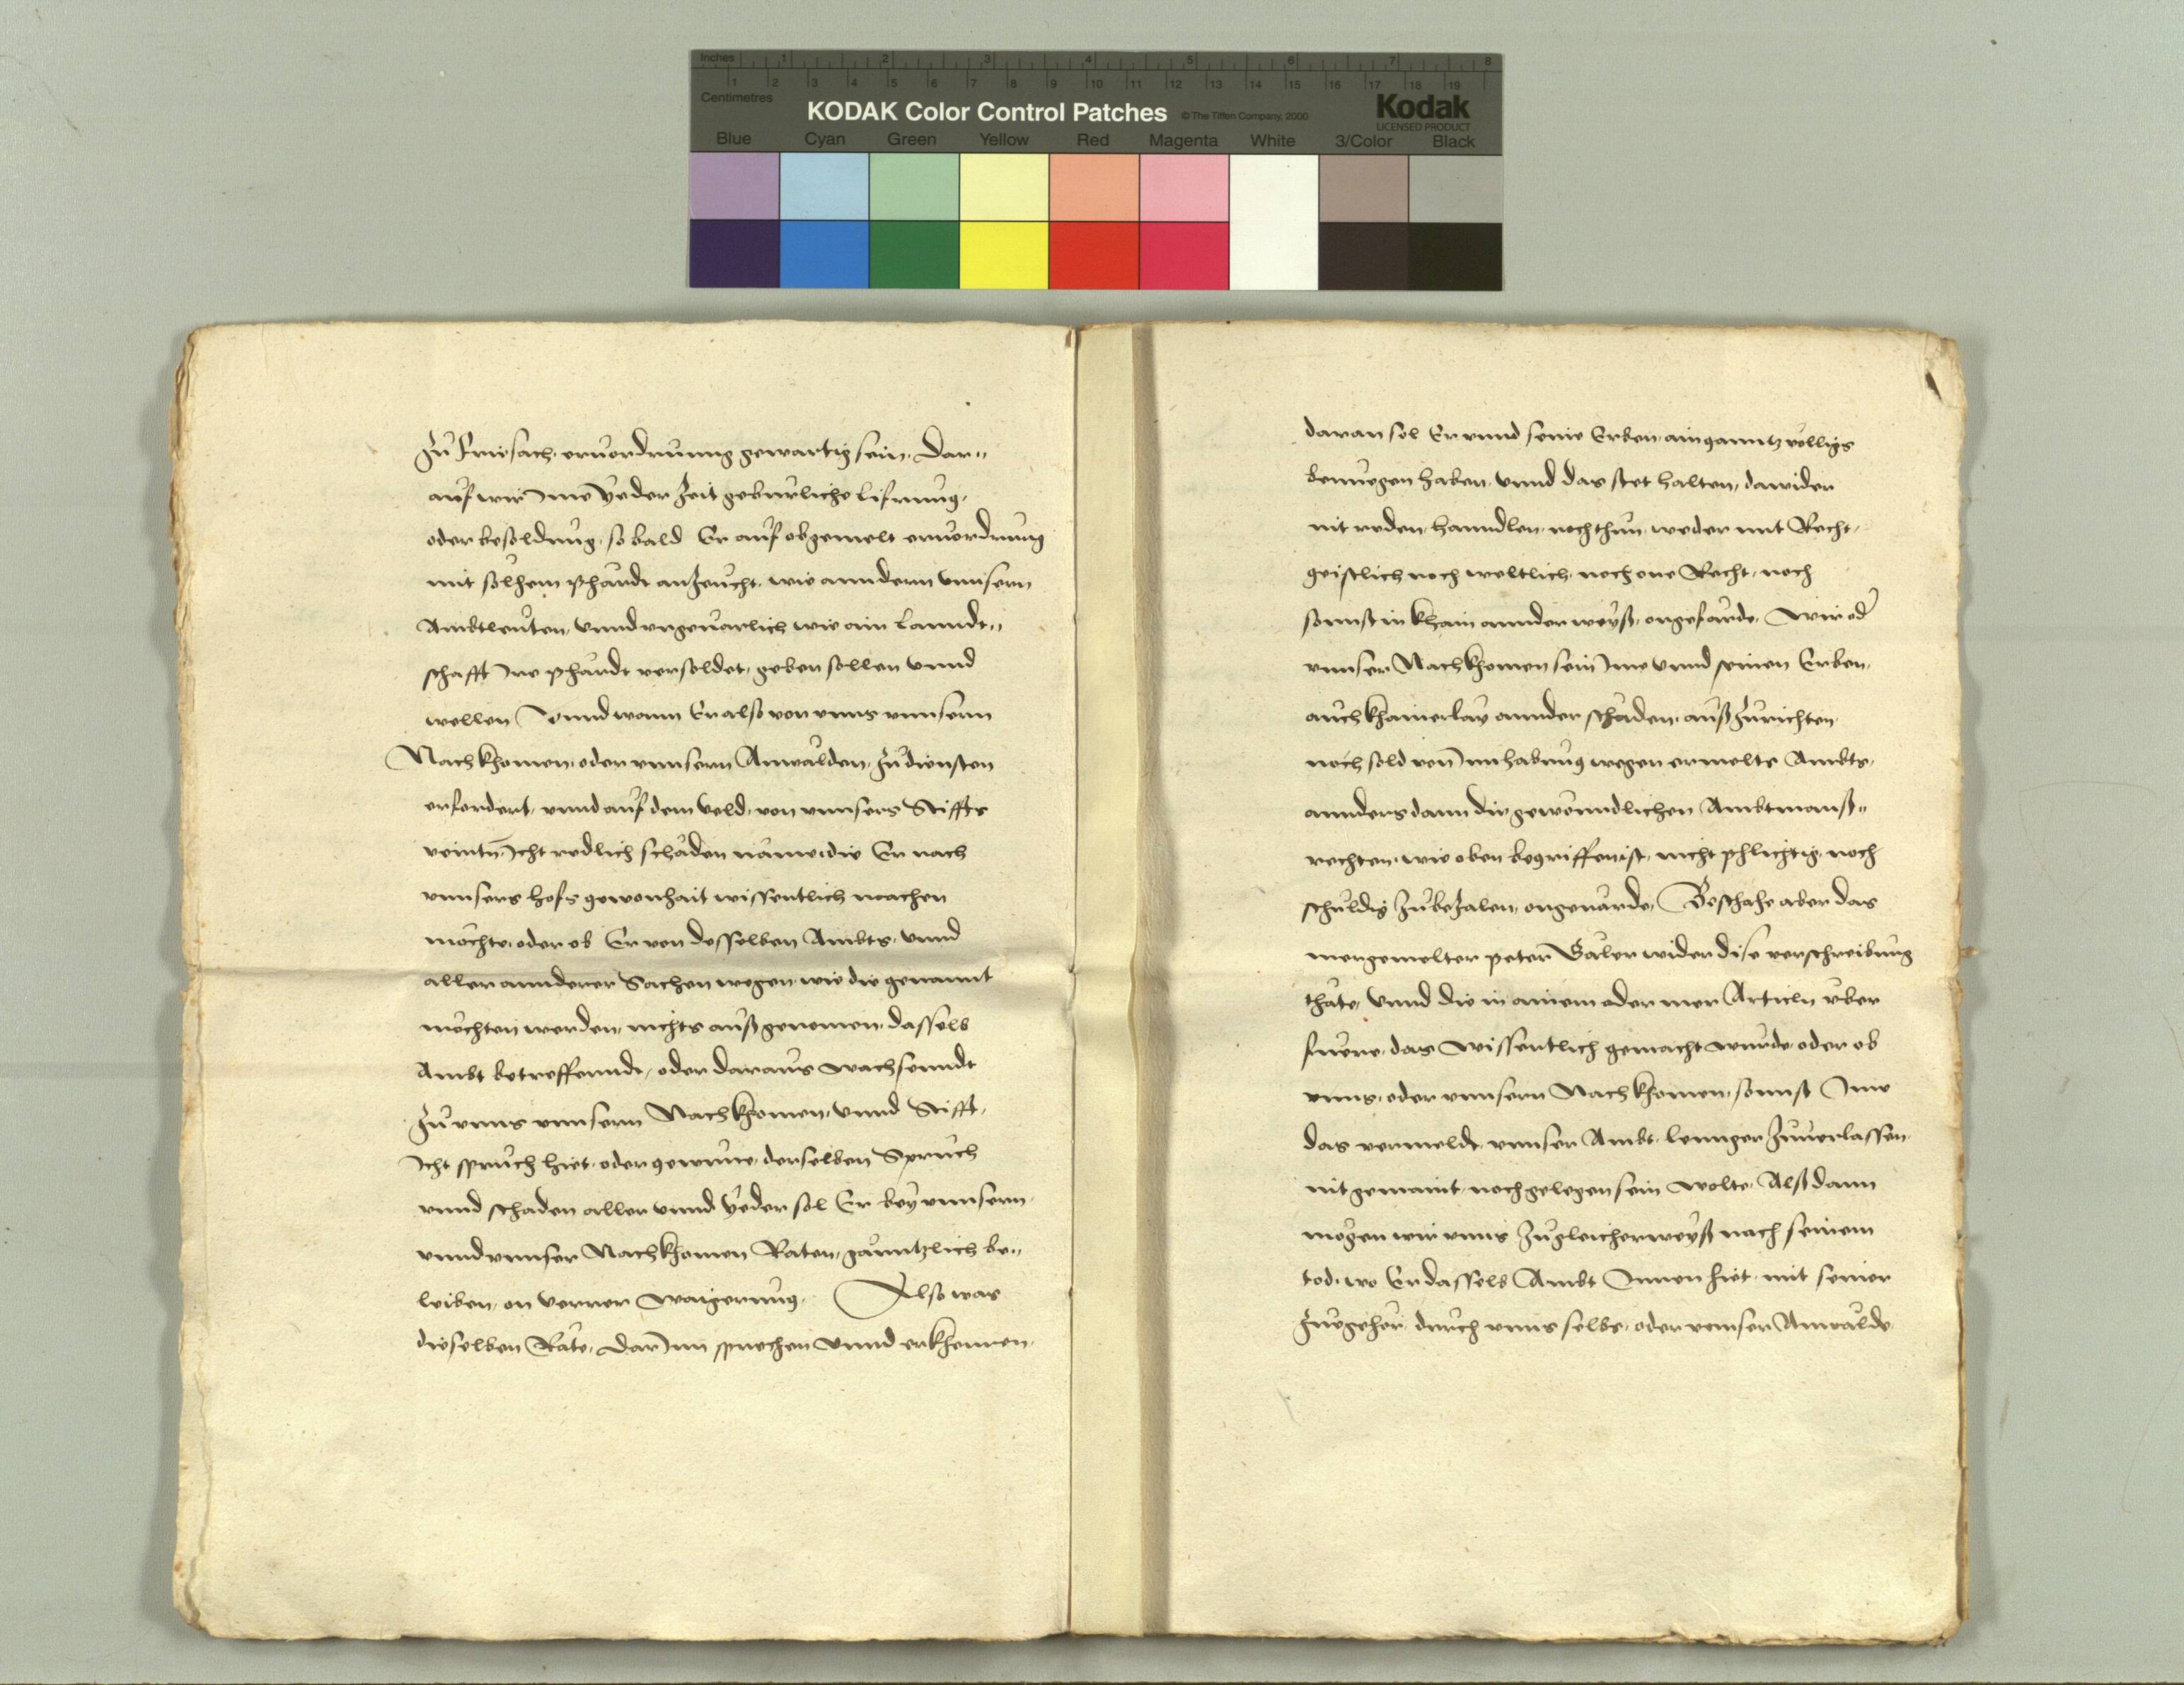 Inches 1 2 3 4 5 6 7 8
1 2 3 4 5 6 7 8 9 10 11 12 13 14 15 16 17 18 19
Centimetres
KODAK Color Control Patches © The Tiffen Company, 2000 Kodak
LICENSED PRODUCT
Blue Cyan Green Yellow Red Magenta White 3/Color Black
Zu Friesach, eruordrung gewartig sein. Dar„
auf wir Ime yeder Zeit geburliche lifrung,
oder besoldung, so bald Er auf obgemelt eruordrung
mit solhem phärdt anzeucht, wie anndern vnnsern
Ambtleuten, vnnd vngeuarlich wie ain Lanndt„
schafft Ire phärdt versoldet, geben sollen vnnd
wellen Vnnd wann Er also von vnns vnnsern
Nachkhomen, oder vnnsern Anwälden, zu diensten
erfordert, vnnd auf dem veld, von vnnsers Stiffts
veintn, Icht redlich schäden näme, die Er nach
vnnsers hofs gewonhait wissentlich machen
möchte, oder ob Er von desselben Ambts, vnnd
aller annderer Sachen wegen, wie die genannt
möchten werden, nichts außgenomen, dasselb
Ambt betreffenndt, oder daraus wachsenndt
Zu vnns vnnsern Nachkhomen, vnnd Stifft,
Icht spruch hiet, oder gewunne, derselben Spruch
vnnd schaden aller vnnd yeder sol Er bey vnnsern
vnnd vnnser Nachkhomen Räten, gänntzlich be„
leiben, on verrer waigerung. Also was
dieselben Räte, darInn sprechen vnnd erkhennen,
daran sol Er vnnd seine Erben, ain ganntz völligs
benuegen haben, vnnd das stet halten, dawider
nit reden, hanndlen, noch thun, weder mit Recht,
geistlich noch weltlich, noch one Recht, noch
sonnst in khain annder weyß, ongefärde. Wir od'
vnnser Nachkhomen sein Ime vnnd seinen Erben,
auch khainerlay annder schäden, außzurichten
noch sold von Innhabung wegen ermelts Ambts,
annders dann die gewonndlichen Ambtmanß„
rechten, wie oben begriffen ist, nicht phlichtig, noch
schuldig zubezalen, ongeuärde, Beschahe aber das
mergemelter peter wider dise verschreibung
thäte, vnnd die in ainem oder mer Articln vber
fuere, das wissentlich gemacht wurde, oder ob
vnns, oder vnnsern Nachkhomen, sonnst Ime
das vermeldt, vnnser Ambt, lennger zuuerlassen
nit gemaint, noch gelegen sein wolte, Alßdann
mögen wir vnns zugleicherweyß nach seinem
tod, wo Er dasselb Ambt Innen hiet, mit seiner
Zuegehör, durch vnns selbs, oder vnnser Anwälde